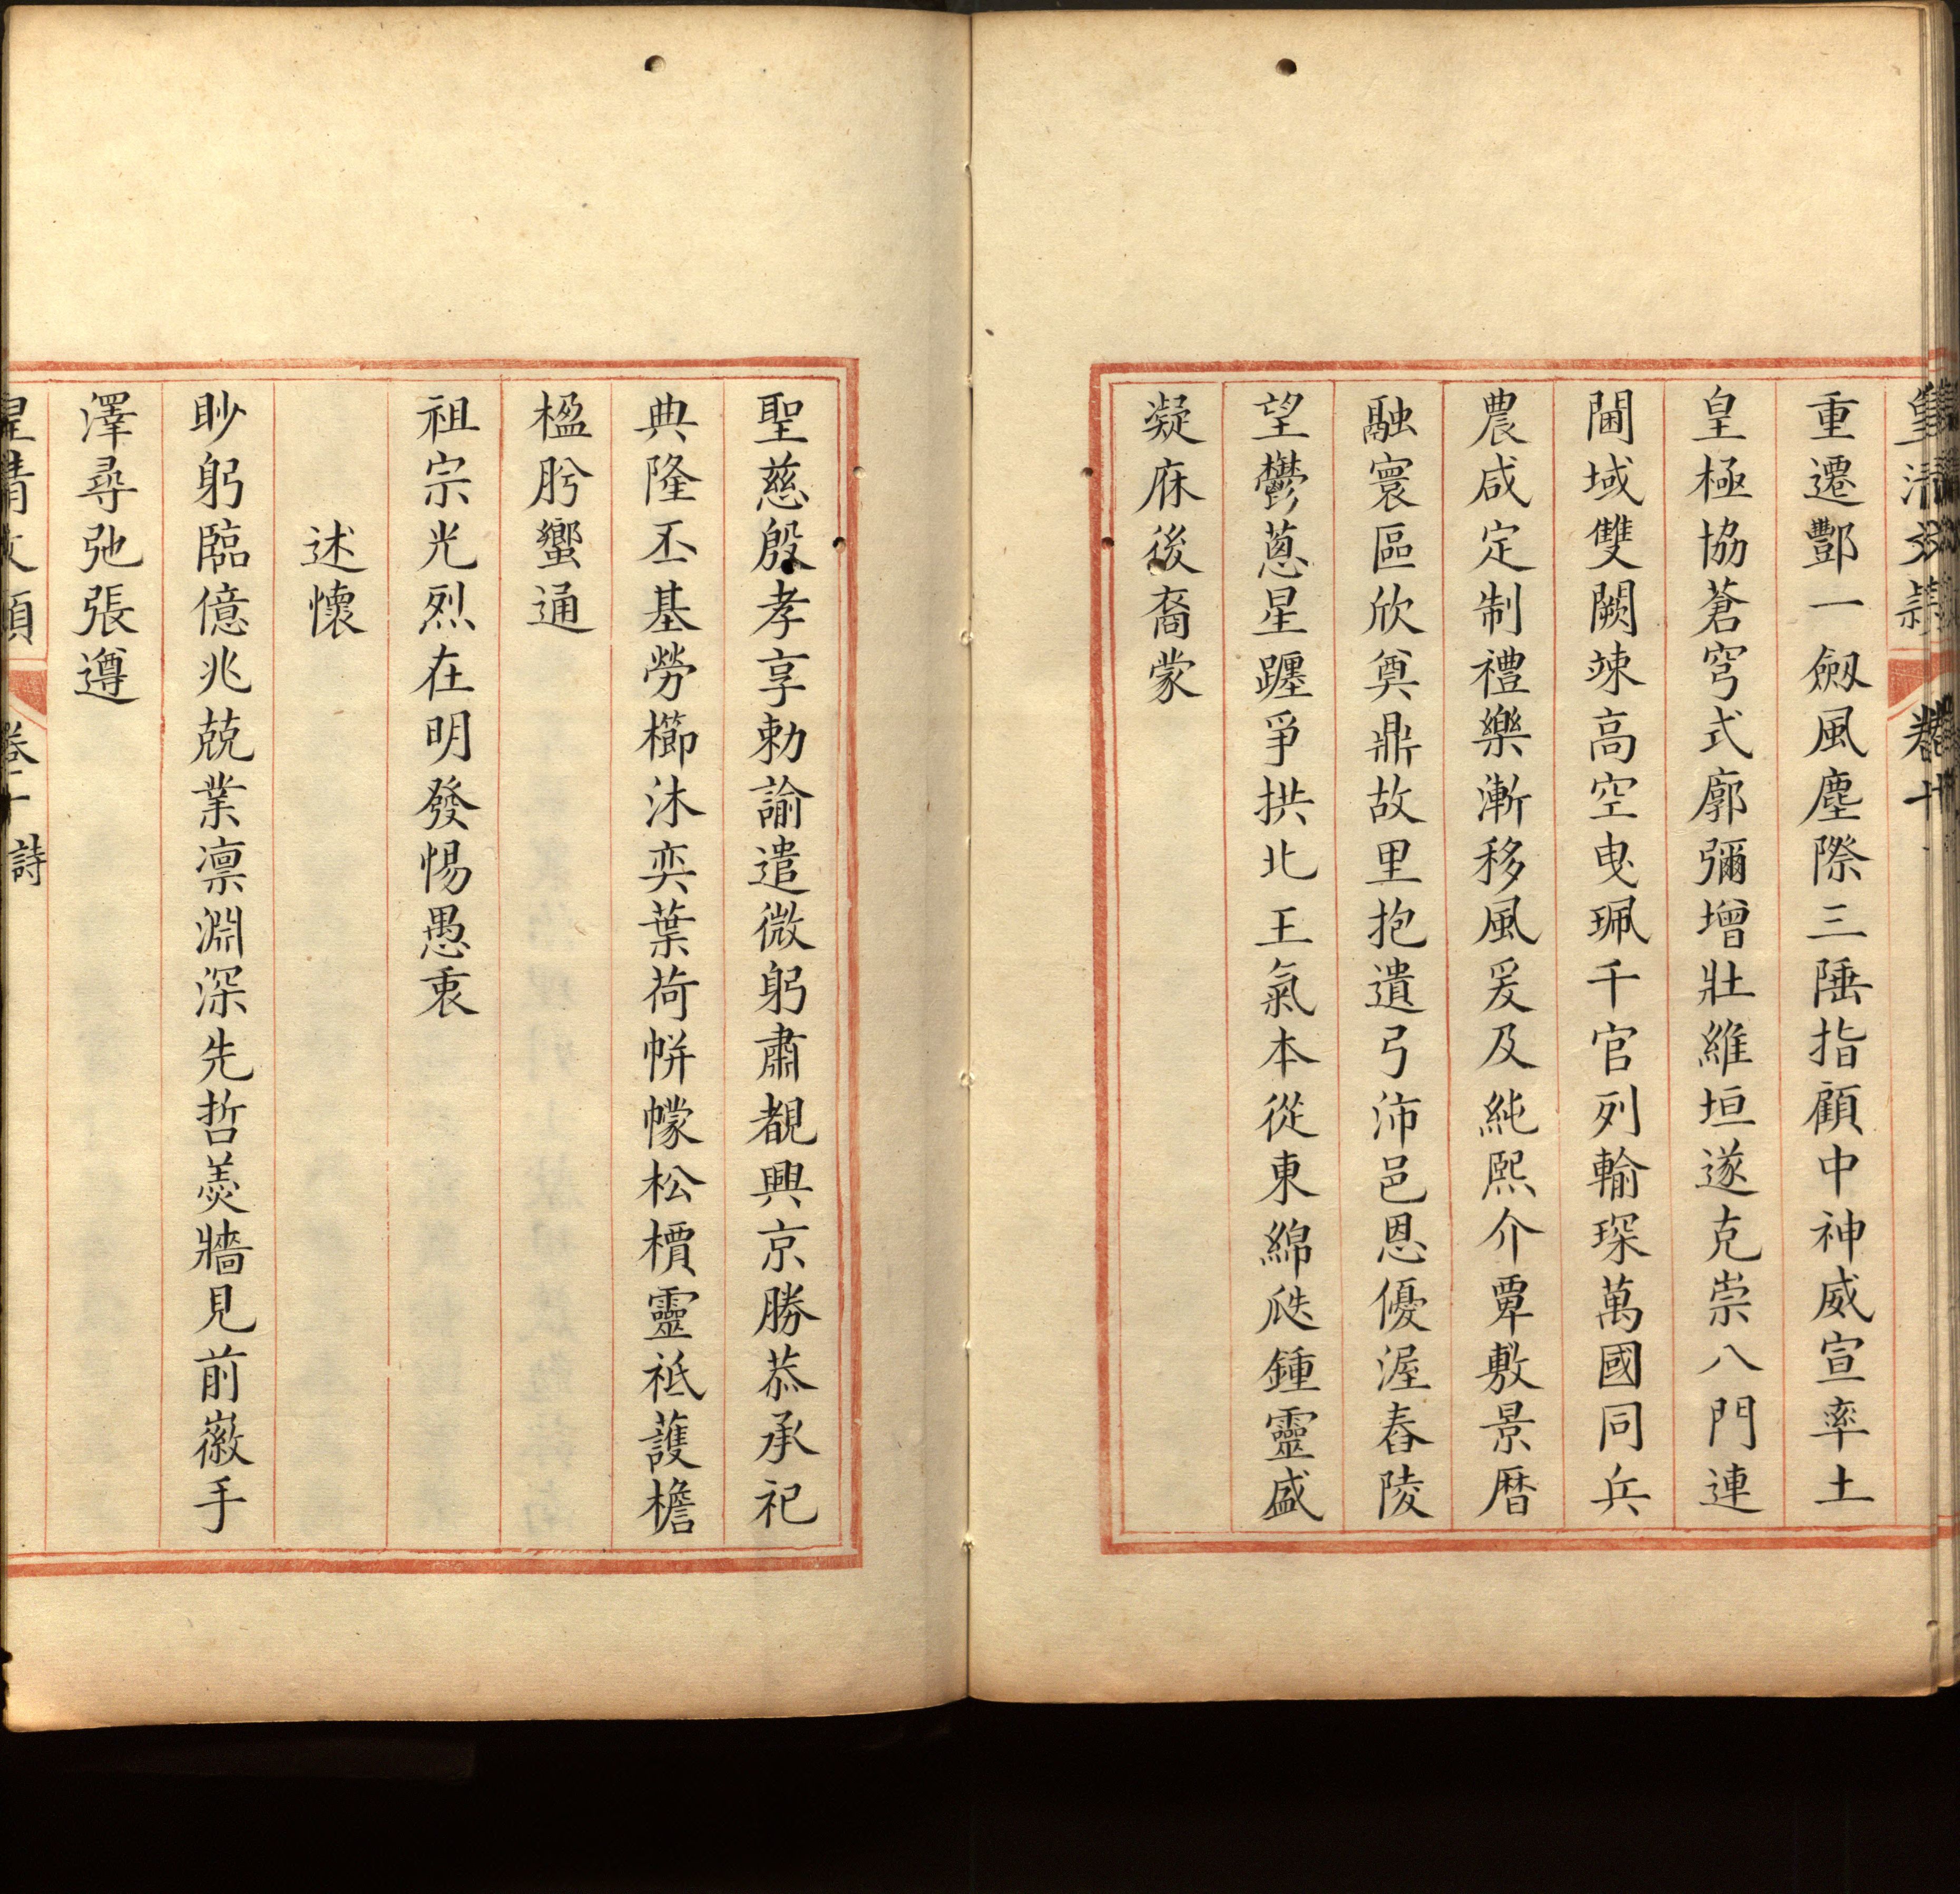 皇清文穎 卷十
重遷酆一劔風塵際三陲指顧中神威宣率土
皇極協蒼穹式廓彌增壯維垣遂克崇八門連
閫域雙闕竦高空曳珮千官列輸琛萬國同兵
農咸定制禮樂漸移風爰及純熙介覃敷景曆
融寰區欣奠鼎故里抱遺弓沛邑恩優渥舂陵
望鬱蔥星躔爭拱北王氣本從東綿瓞鍾靈盛
凝庥後裔蒙
聖慈殷孝享勅諭遣微躬肅覩興京勝恭承祀
典隆丕基勞櫛沐奕葉荷帡幪松檟靈祗護檐
楹肸蠁通
祖宗光烈在明發惕愚衷
述懷
眇躬臨億兆兢業凛淵深先哲羮牆見前徽手
澤尋弛張遵
皇清文穎 卷十 詩